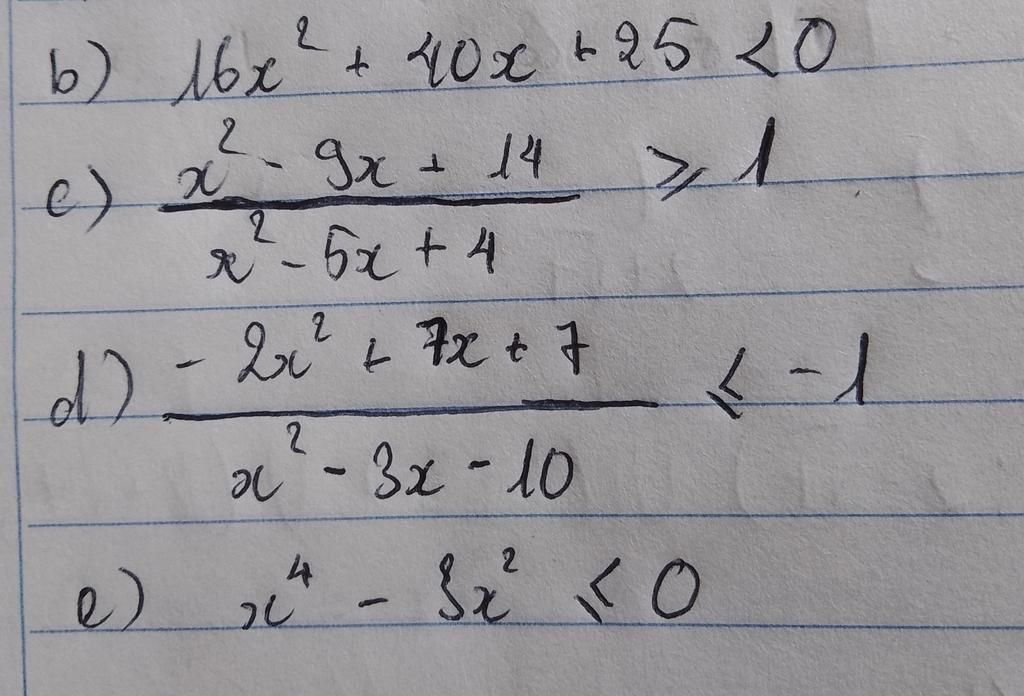 b) 16x² + 40x + 25 < 0
c) (x² - 9x + 14)/(x² - 5x + 4) ⩾ 1
d) (-2x² + 7x + 7)/(x² - 3x - 10) ⩽ -1
e) x⁴ - 3x² ⩽ 0